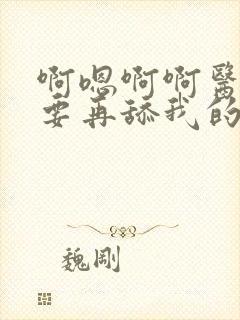 啊嗯啊啊醫
要再舔我的
魏剛